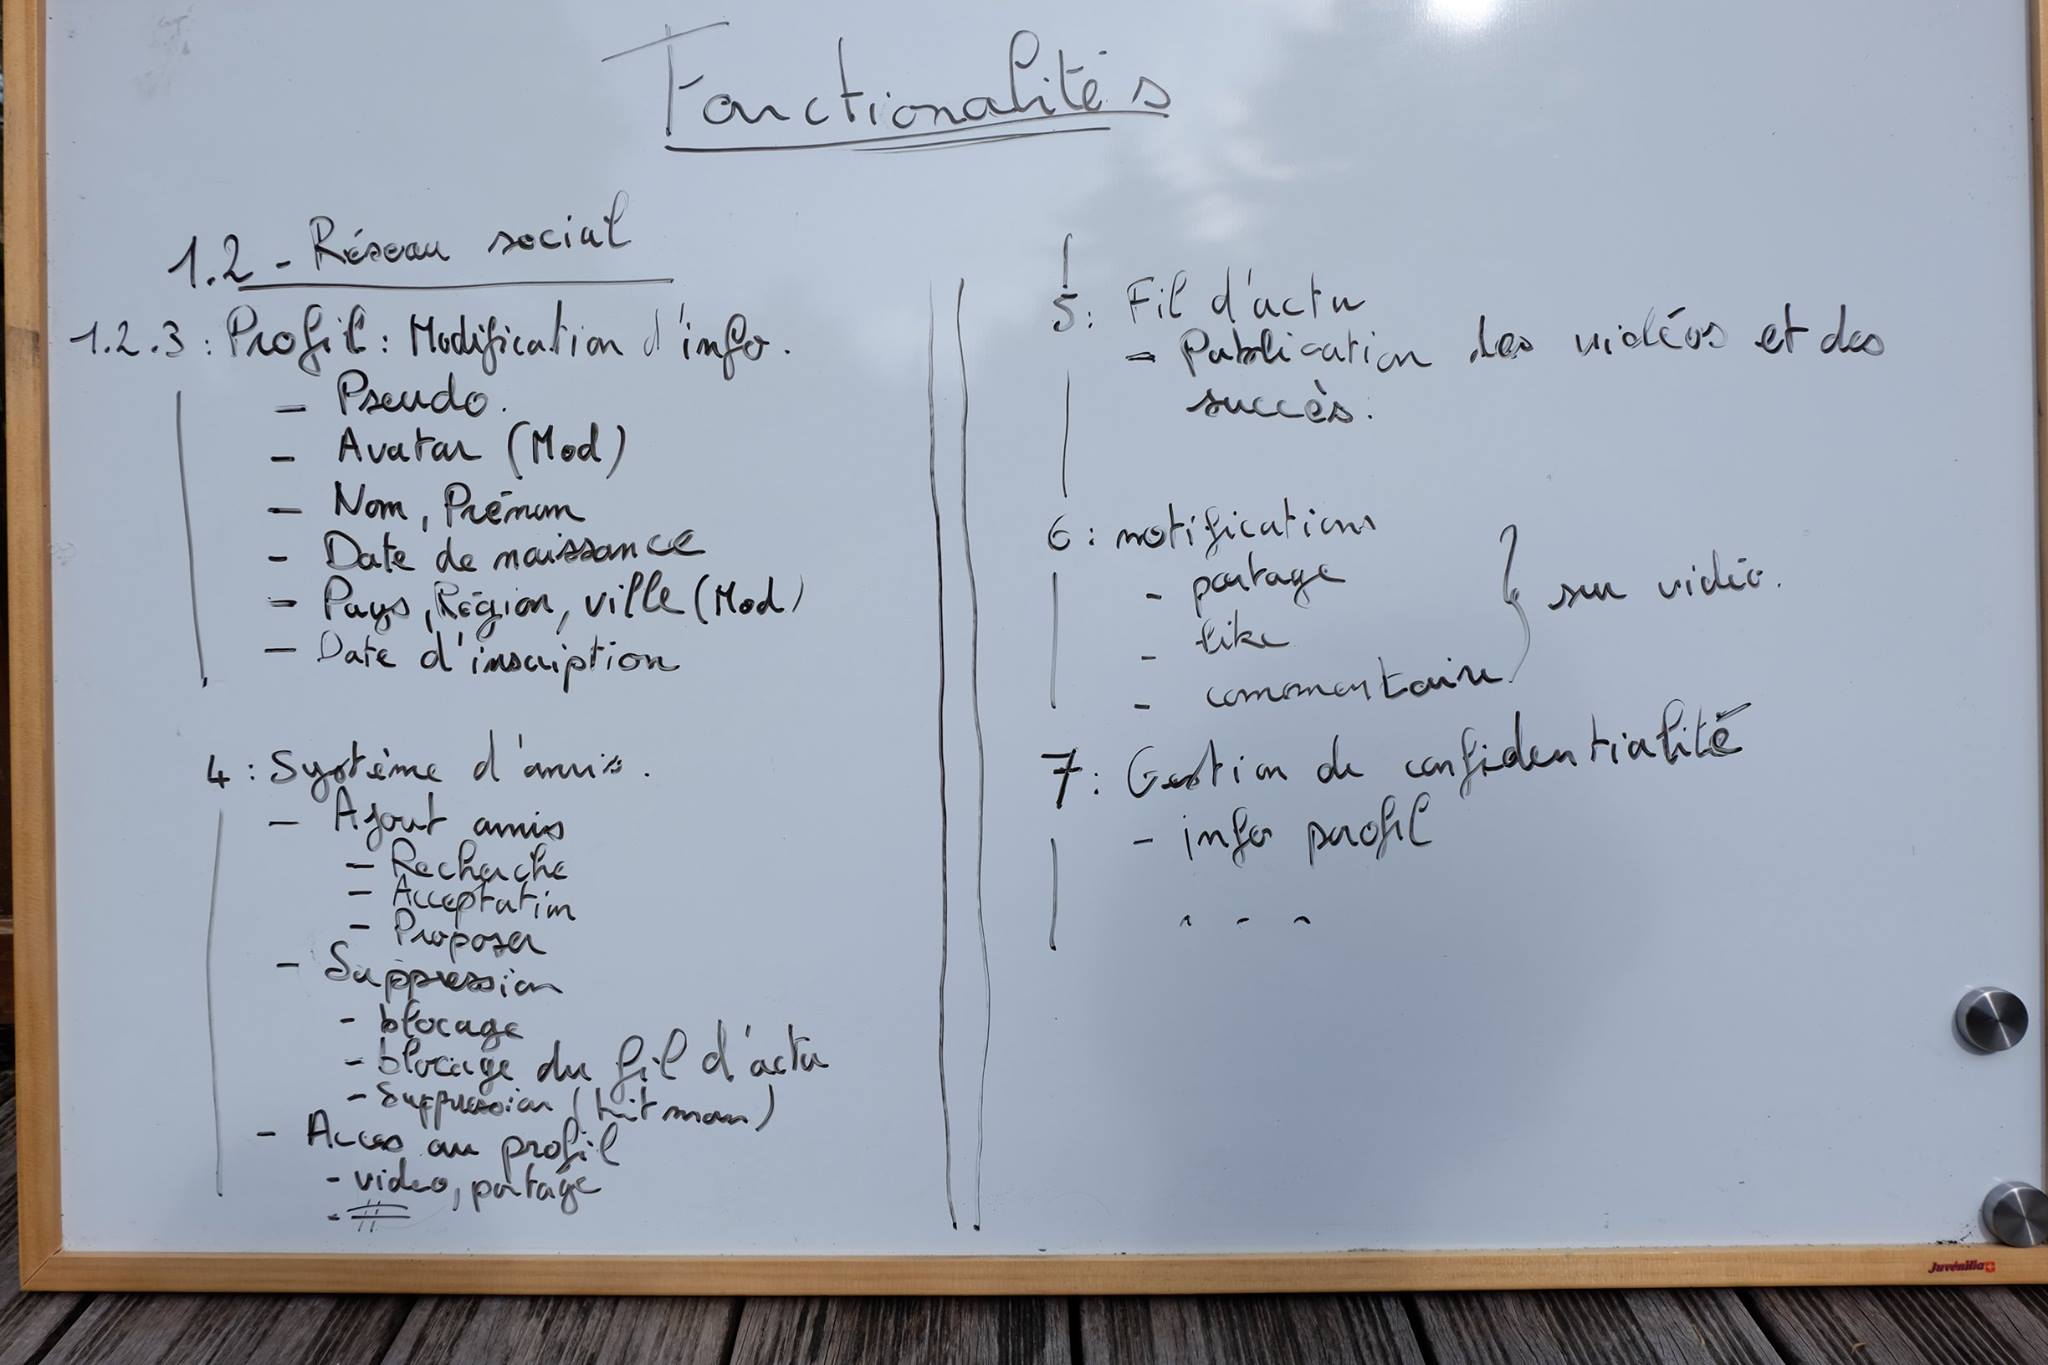 Fonctionalités
1.2 - Réseau social
1.2.3 : Profil : Modification d'info.
- Pseudo.
- Avatar (Mod)
- Nom, Prénom
- Date de naissance
- Pays, Région, ville (Mod)
- Date d'inscription
4 : Système d'amis.
- Ajout amis
- Recherche
- Acceptation
- Proposer
- Suppression
- blocage
- blocage du fil d'actu
- Suppression (hitman)
- Acces au profil
- video, partage
5 : Fil d'actu
- Publication des vidéos et des
succès.
6 : notifications
- partage
- like
- commentaire
sur vidéo.
7 : Gestion de confidentialité
- info profil
- - -
Juvénilia